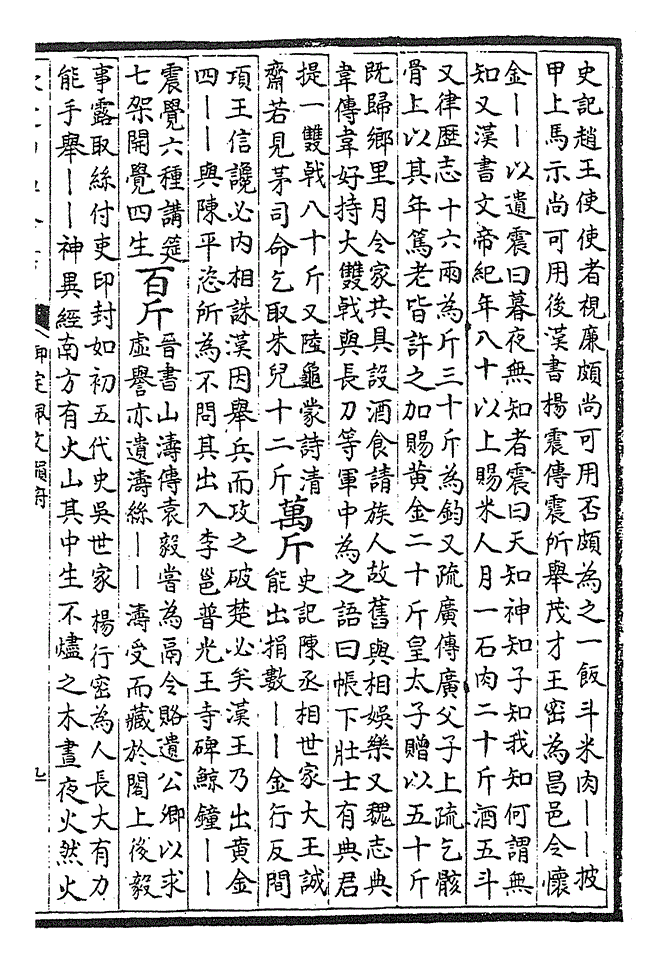 史記趙王使使者視廉頗尚可用否頗為之一飯斗米肉——披
甲上馬示尚可用後漢書楊震傳震所舉茂才王密為昌邑令懷
金——以遺震曰暮夜無知者震曰天知神知子知我知何謂無
知又漢書文帝紀年八十以上賜米人月一石肉二十斤酒五斗
又律歴志十六兩為斤三十斤為鈞又疏廣傳廣父子上疏乞骸
骨上以其年篤老皆許之加賜黃金二十斤皇太子贈以五十斤
既歸鄉里月令家共具設酒食請族人故舊與相娛樂又魏志典
韋傳韋好持大雙戟與長刀等軍中為之語曰帳下壯士有典君
提一雙戟八十斤又陸龜蒙詩清
齋若見茅司命乞取朱兒十二斤
萬斤
史記陳丞相世家大王誠
能出捐數——金行反間
項王信讒必内相誅漢因舉兵而攻之破楚必矣漢王乃出黄金
四——與陳平恣所為不問其出入李邕普光王寺碑鯨鐘——
震覺六種講筵
七架開覺四生
百斤
晉書山濤傳袁毅嘗為鬲令賂遺公卿以求
虛譽亦遺濤絲——濤受而藏於閣上後毅
事露取絲付吏印封如初五代史吳世家楊行密為人長大有力
能手舉——神異經南方有火山其中生不燼之木晝夜火然火
御定佩文韻府